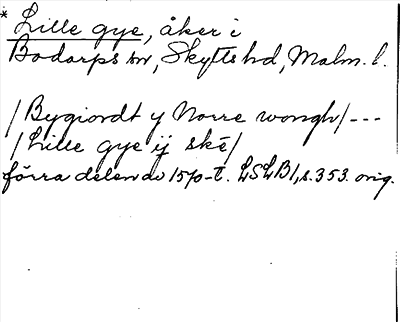 * Lille gye, åker i
Bodarps sn, Skytts hd, Malm. l.
/Bygiordt y Norre wongh/---
/Lille gye ij ske/
förra delen av 1570-t. LSLB1, s. 353. orig.